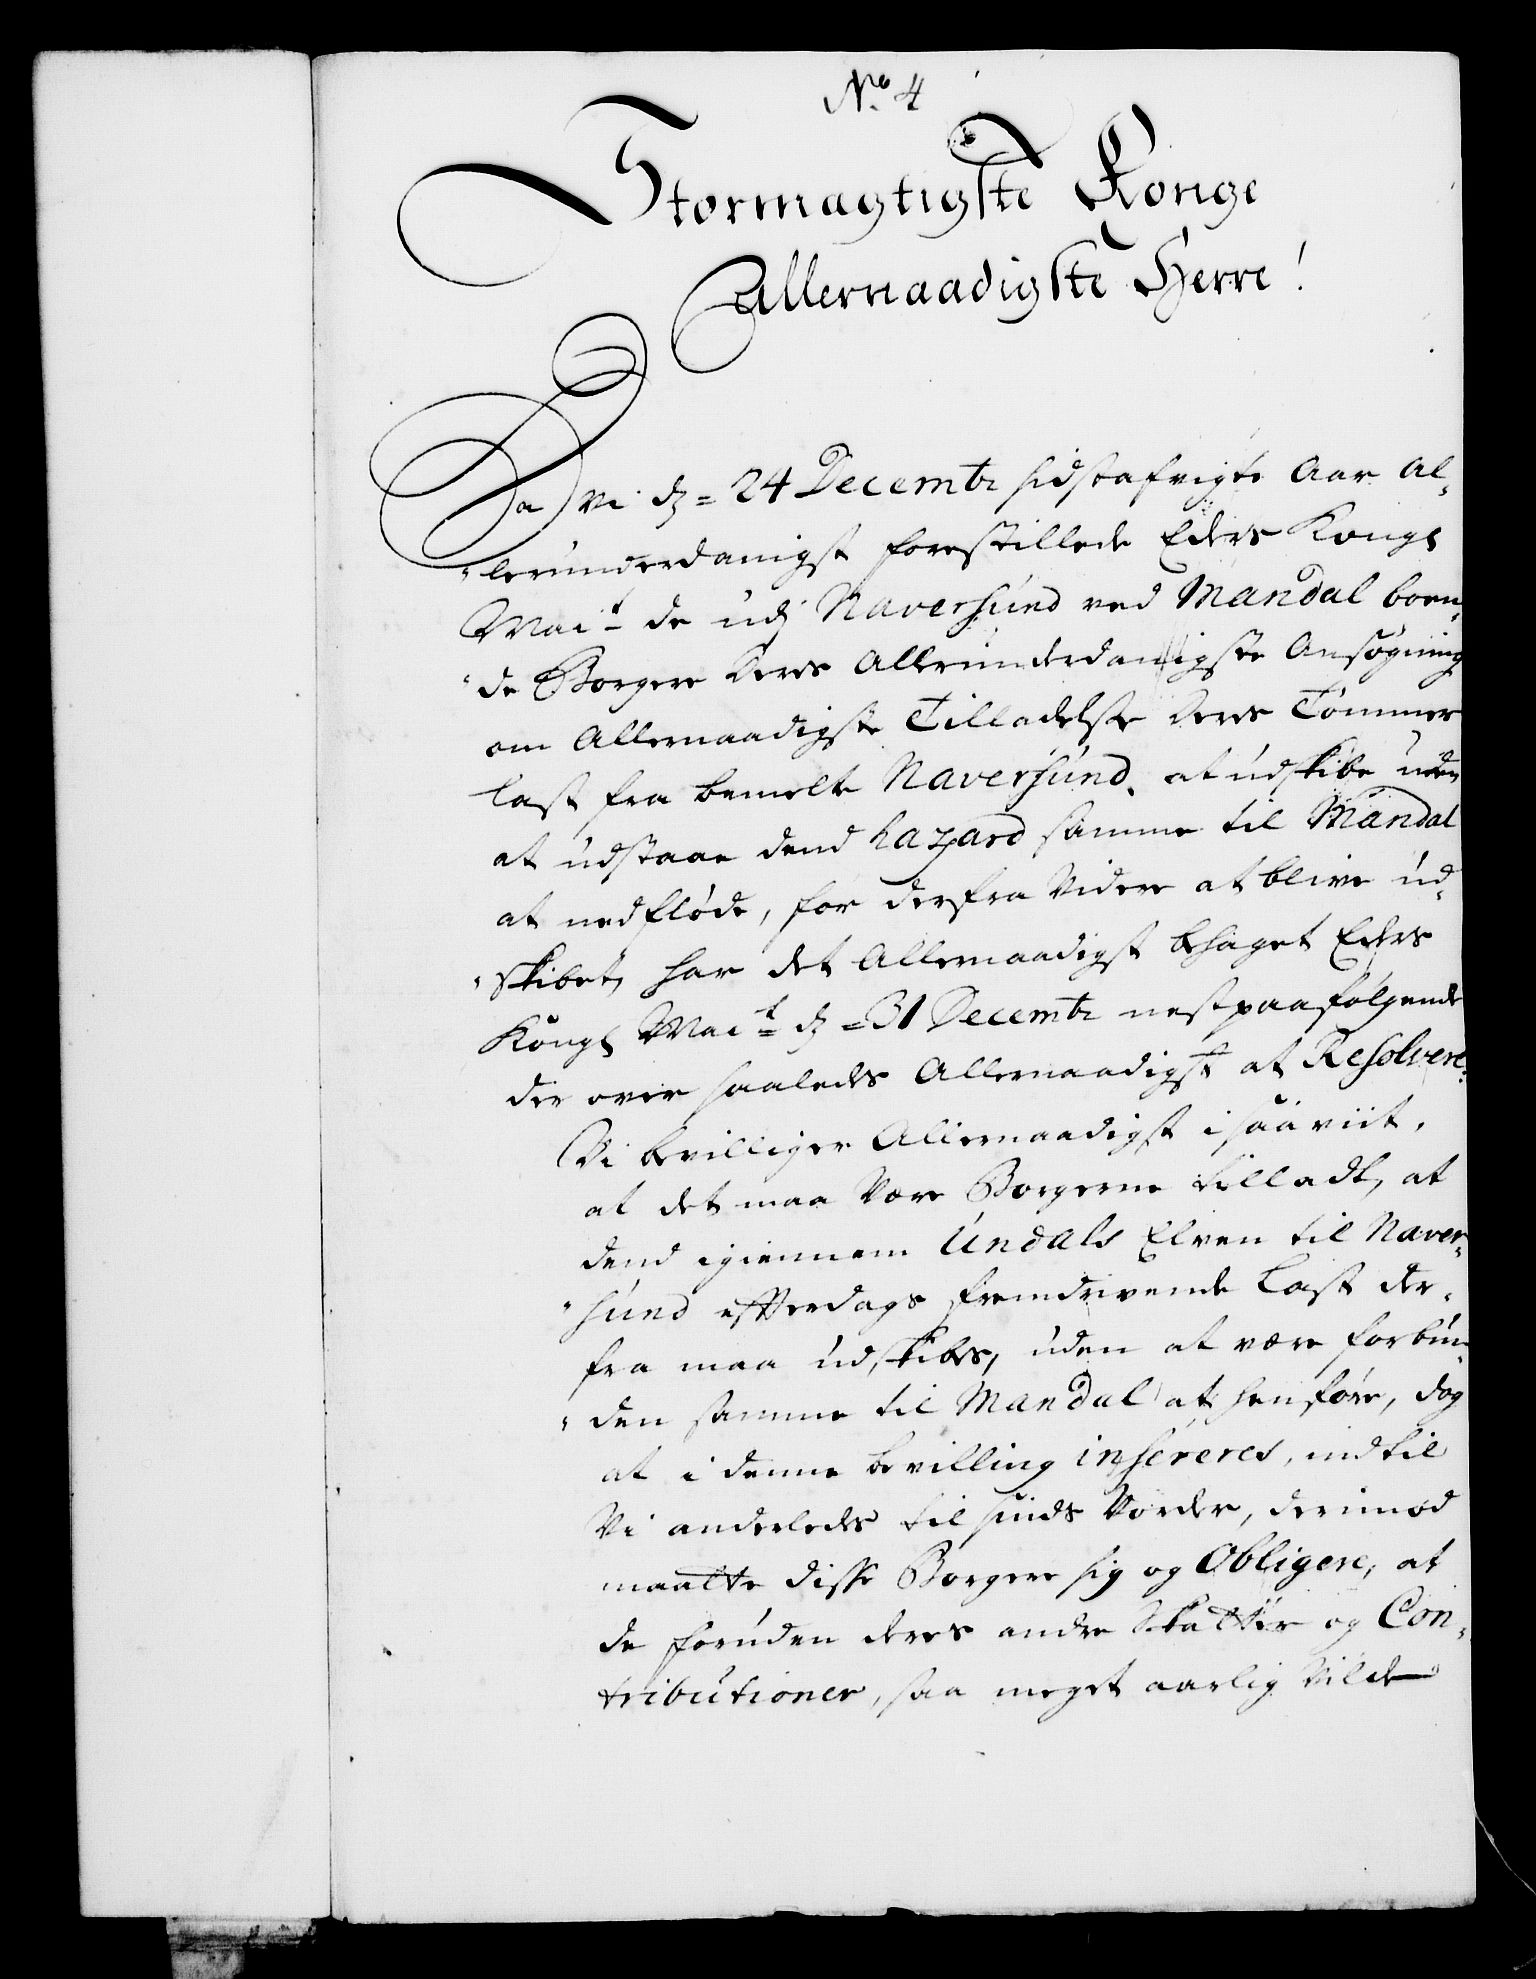 No. 4
Stormagtigste Konge
Allernaadigste Herre!
Da Vi dz = 24 Decembr sidstafvigte Aar Al„
„lerunderdanigst forestillede Eders Kongl
Mait de udj Naversund ved Mandal boen„
„de Borgere deres Allerunderdanigste Ansøgning
om Allernaadigste Tilladelse deres Tømmer
last fra bemelte Naversund at udskibe uden
at udstaae dend hazard samme til Mandal
at nedfløde, for derfra Videre at blive ud„
„skibet, har det Allernaadigst behaget Eders
Kongl Mait dz = 31 Decembr nestpaafølgende
der over saaledes Allernaadigst at Resolvere:
Vi bevilliger Allernaadigst i saa viit,
at det maa Være Borgerne tilladt, at
dend igiennem Undals Elven til Naver„
„sund efterdags fremdrivende Last der„
fra maa udskibes, uden at være forbun„
„den samme til Mandal at henføre, dog
at i denne bevilling insereres, indtil
Vi anderledes til sinds Vorder, derimod
maatte disse Borgere sig og Obligere, at
de foruden deres andre Skatter og Con„
tributioner, saa meget aarlig Vilde